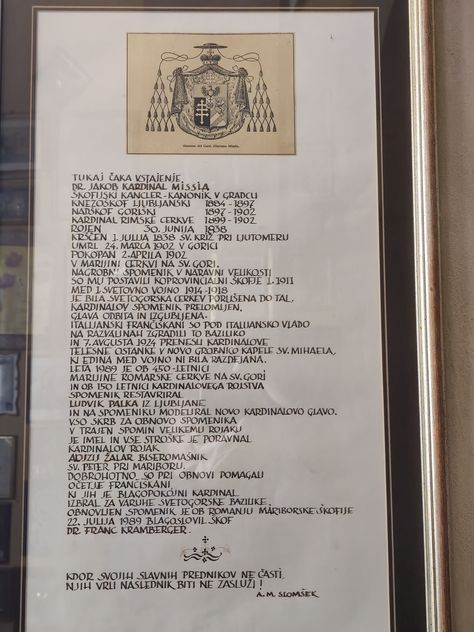 TUKAJ ČAKA VSTAJENJE,
DR. JAKOB KARDINAL MISSIA
ŠKOFIJSKI KANCLER-KANONIK V GRADCU
KNEZOŠKOF LJUBLJANSKI 1884-1897
NADŠKOF GORIŠKI 1897-1902
KARDINAL RIMSKE CERKVE 1899-1902
ROJEN 30. JUNIJA 1838
KRŠČEN 1. JULIJA 1838 SV. KRIŽ PRI LJUTOMERU
UMRL 24. MARCA 1902 V GORICI
POKOPAN 2. APRILA 1902
V MARIJINI CERKVI NA SV. GORI.
NAGROBNI SPOMENIK V NARAVNI VELIKOSTI
SO MU POSTAVILI KOPROVINCIALNI ŠKOFJE L. 1911
MED 1. SVETOVNO VOJNO 1914-1918
JE BILA SVETOGORSKA CERKEV PORUŠENA DO TAL,
KARDINALOV SPOMENIK PRELOMLJEN,
GLAVA ODBITA IN IZGUBLJENA.
ITALIJANSKI FRANČIŠKANI SO POD ITALIJANSKO VLADO
NA RAZVALINAH ZGRADILI TO BAZILIKO
IN 7. AVGUSTA 1924 PRENESLI KARDINALOVE
TELESNE OSTANKE V NOVO GROBNICO KAPELE SV. MIHAELA,
KI EDINA MED VOJNO NI BILA RAZDEJANA.
LETA 1989 JE OB 450-LETNICI
MARIJINE ROMARSKE CERKVE NA SV. GORI
IN OB 150 LETNICI KARDINALOVEGA ROJSTVA
SPOMENIK RESTAVRIRAL
LUDVIK PALKA IZ LJUBLJANE
IN NA SPOMENIKU MODELIRAL NOVO KARDINALOVO GLAVO.
VSO SKRB ZA OBNOVO SPOMENIKA
V TRAJEN SPOMIN VELIKEMU ROJAKU
JE IMEL IN VSE STROŠKE JE PORAVNAL
KARDINALOV ROJAK
ALOJZIJ ŽALAR BISEROMAŠNIK
SV. PETER PRI MARIBORU.
DOBROHOTNO SO PRI OBNOVI POMAGALI
OČETJE FRANČIŠKANI,
KI JIH JE BLAGOPOKOJNI KARDINAL
IZBRAL ZA VARUHE SVETOGORSKE BAZILIKE.
OBNOVLJEN SPOMENIK JE OB ROMANJU MARIBORSKE ŠKOFIJE
22. JULIJA 1989 BLAGOSLOVIL ŠKOF
DR. FRANC KRAMBERGER.
KDOR SVOJIH SLAVNIH PREDNIKOV NE ČASTI,
NJIH VRLI NASLEDNIK BITI NE ZASLUŽI!
A. M. SLOMŠEK